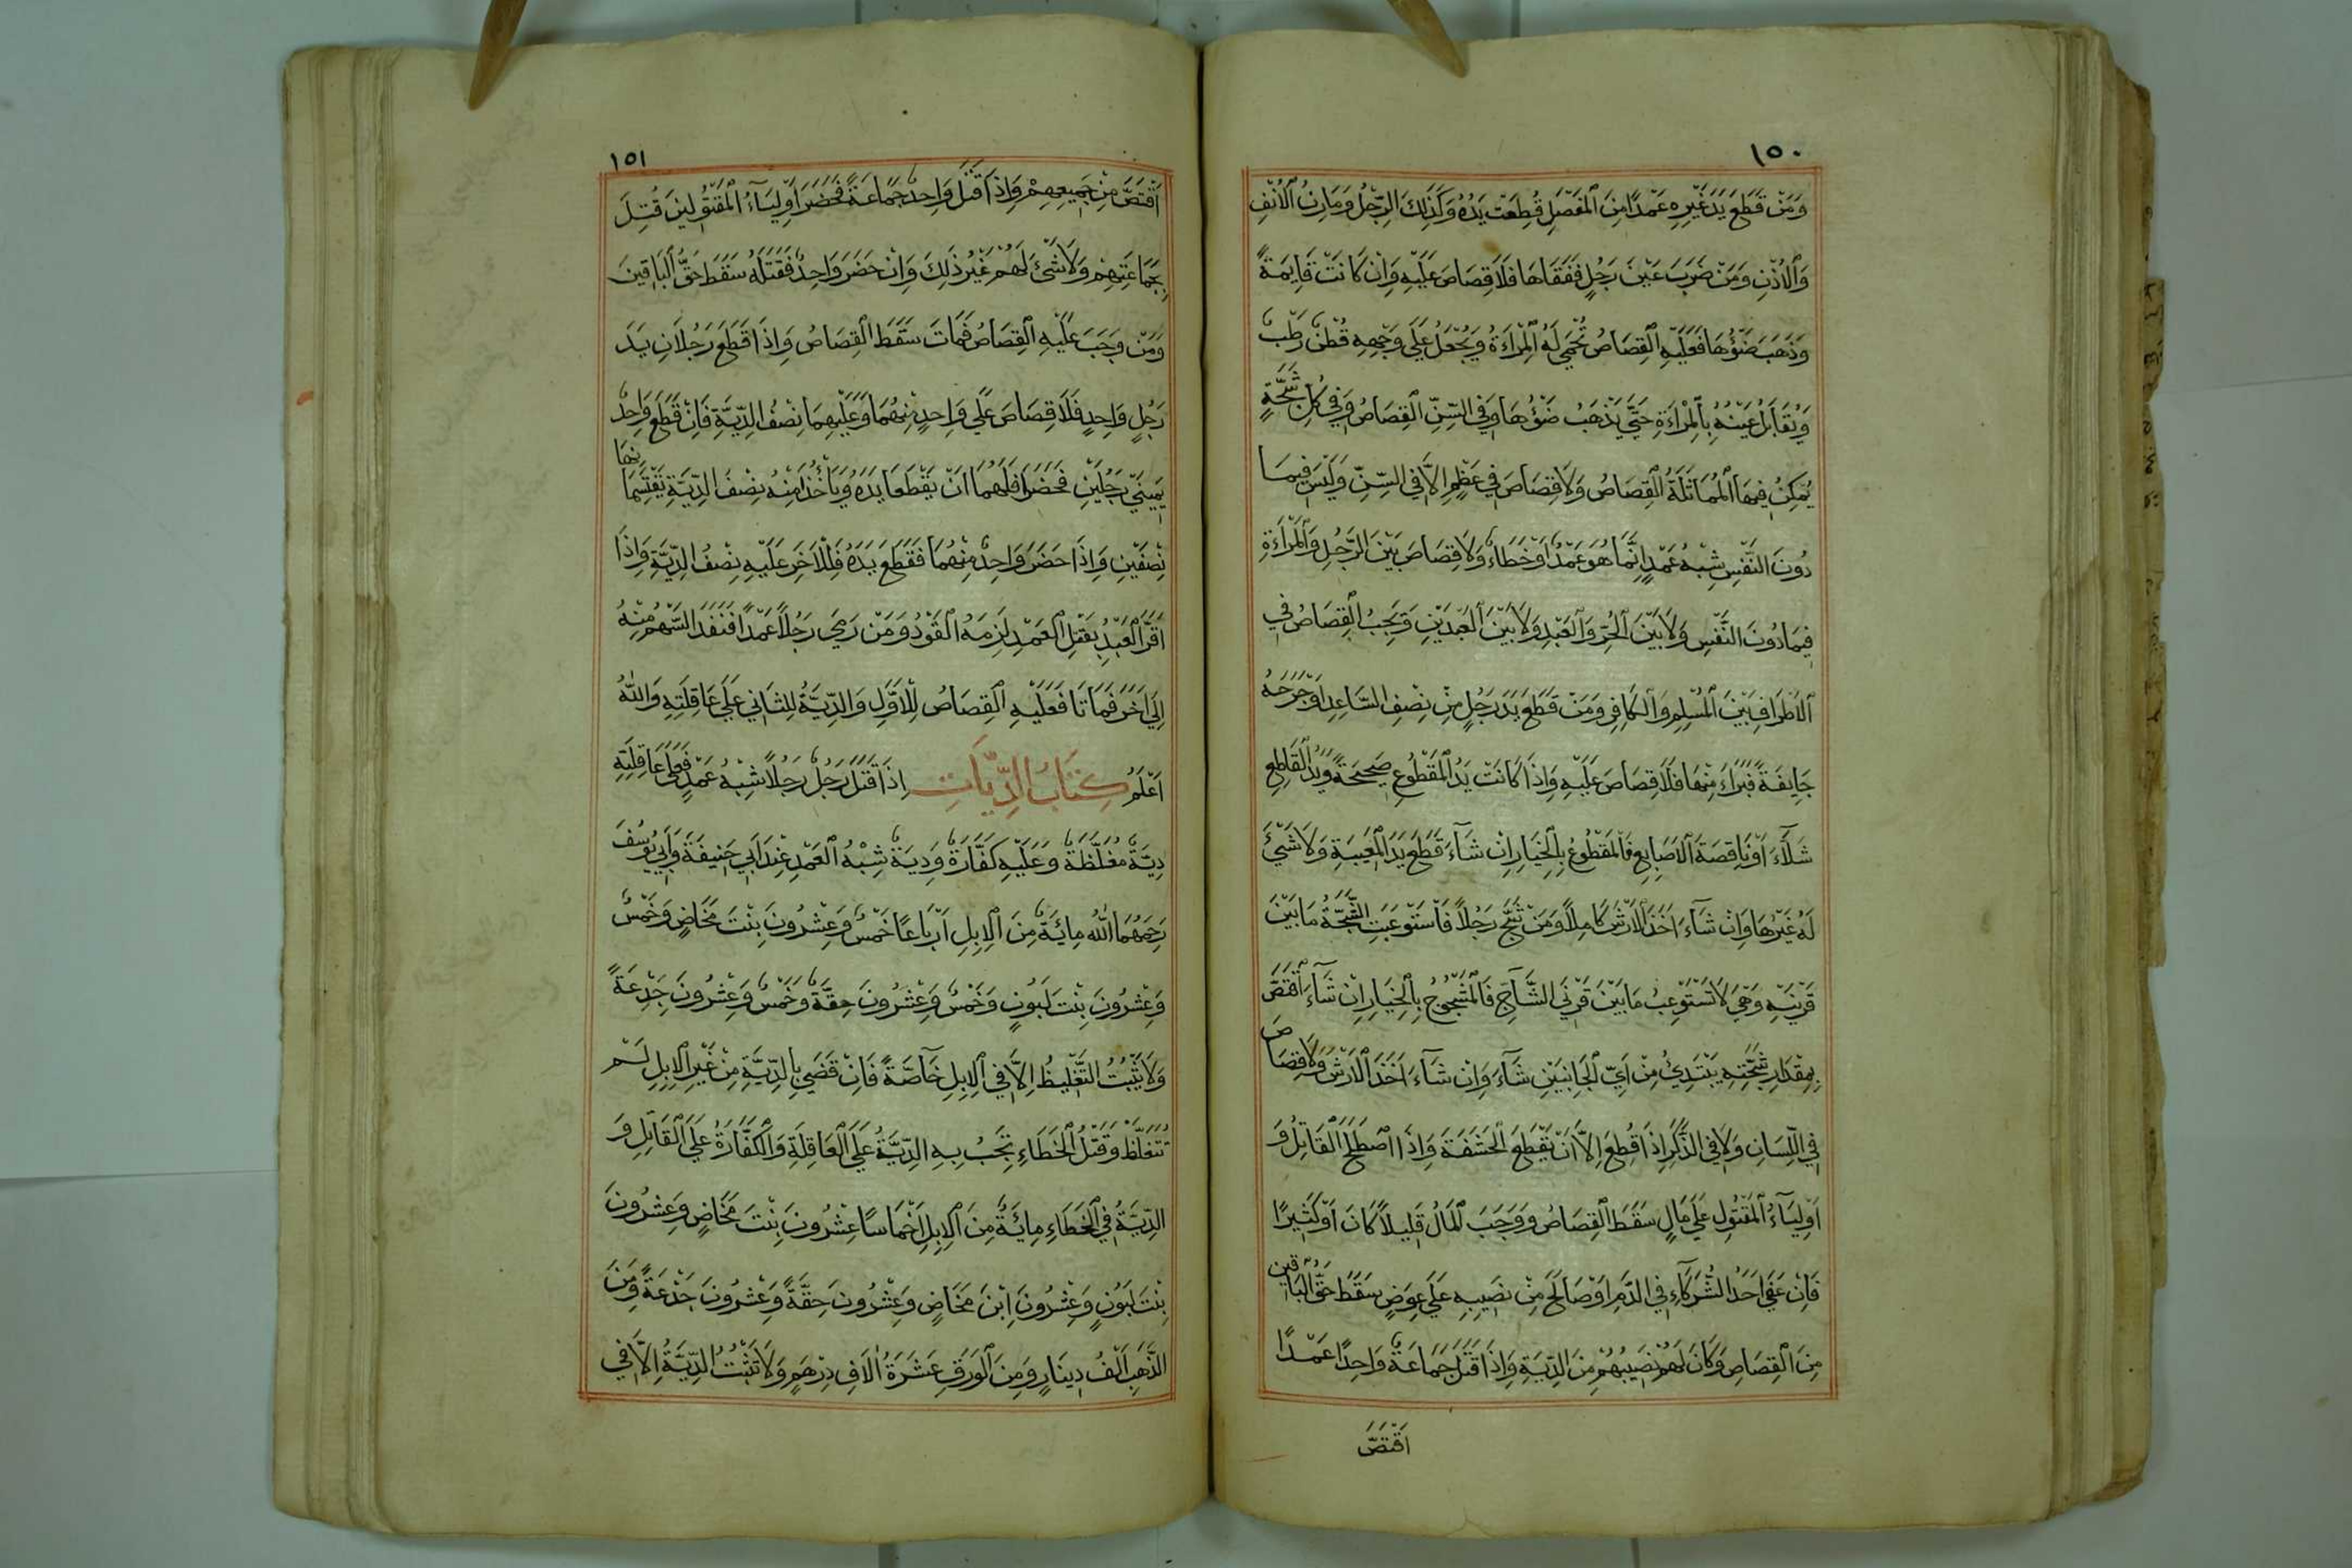 ١٥٠
وَمَنْ قَطَعَ يَدَ غَيْرِهِ عَمْدًا مِنَ الْمَفْصَلِ قُطِعَتْ يَدُهُ وَكَذَلِكَ الرِّجْلُ وَمَارِنُ الْاَنْفِ
وَالْاُذُنِ وَمَنْ ضَرَبَ عَيْنَ رَجُلٍ فَفَقَاهَا فَلَا قِصَاصَ عَلَيْهِ وَاِنْ كَانَتْ قَايِمَةً
وَذَهَبَ ضَوْؤُهَا فَعَلَيْهِ الْقِصَاصُ تُحْمَى لَهُ الْمِرْاَةُ وَيُجْعَلُ عَلَي وَجْهِهِ قُطْنٌ رَطْبٌ
وَيُقَابَلُ عَيْنُهُ بِالْمِرْاَةِ حَتَّي يَذْهَبَ ضَوْؤُهَا وَفِي السِّنِّ الْقِصَاصُ وَفِي كُلِّ شَجَّةٍ
يُمْكِنُ فِيهَا الْمُمَاثَلَةُ الْقِصَاصُ وَلَا قِصَاصَ فِي عَظْمٍ اِلَّا فِي السِّنِّ وَلَيْسَ فِيمَا
دُونَ النَّفْسِ شِبْهُ عَمْدٍ اِنَّمَا هُوَ عَمْدٌ اَوْ خَطَاءٌ وَلَا قِصَاصَ بَيْنَ الرَّجُلِ وَالْمَرْاَةِ
فِيمَا دُونَ النَّفْسِ وَلَا بَيْنَ الْحُرِّ وَالْعَبْدِ وَلَا بَيْنَ الْعَبْدَيْنِ وَيَجِبُ الْقِصَاصُ فِي
الْاَطْرَافِ بَيْنَ الْمُسْلِمِ وَالْكَافِرِ وَمَنْ قَطَعَ يَدَ رَجُلٍ مِنْ نِصْفِ السَّاعِدِ اَوْ جَرَحَهُ
جَايِفَةً فَبَرَاءَ مِنْهَا فَلَا قِصَاصَ عَلَيْهِ وَاِذَا كَانَتْ يَدُ الْمَقْطُوعِ صَحِيحَةً وَيَدُ الْقَاطِعِ
شَلَّاءَ اَوْ نَاقِصَةَ الْاَصَابِعِ فَالْمَقْطُوعُ بِالْخِيَارِ اِنْ شَآءَ قَطَعَ يَدَ الْمَعِيبَةِ وَلَا شَيْئَ
لَهُ غَيْرُهَا وَاِنْ شَآءَ اَخَذَ الْاَرْشَ كَامِلًا وَمَنْ شَجَّ رَجُلًا فَاسْتَوْعَبَتِ الشَّجَّةُ مَا بَيْنَ
قَرْنَيْهِ وَهِيَ لَا تَسْتَوْعِبُ مَا بَيْنَ قَرْنَيِ الشَّاجِّ فَالْمَشْجُوجُ بِالْخِيَارِ اِنْ شَآءَ اقْتَصَّ
بِمِقْدَارِ شَجَّتِهِ يَبْتَدِئُ مِنْ اَيِّ الْجَانِبَيْنِ شَآءَ وَاِنْ شَآءَ اَخَذَ الْاَرْشَ وَلَا قِصَاصَ
فِي اللِّسَانِ وَلَا فِي الذَّكَرِ اِذَا قُطِعَ اِلَّا اَنْ يَقْطَعَ الْحَشَفَةَ وَاِذَا اصْطَلَحَ الْقَاتِلُ وَ
اَوْلِيَآءُ الْمَقْتُولِ عَلَي مَالٍ سَقَطَ الْقِصَاصُ وَوَجَبَ الْمَالُ قَلِيلًا كَانَ اَوْ كَثِيرًا
فَاِنْ عَفَي اَحَدُ الشُّرَكَآءِ فِي الدَّمِ اَوْ صَالَحَ مِنْ نَصِيبِهِ عَلَي عِوَضٍ سَقَطَ حَقُّ الْبَاقِينَ
مِنَ الْقِصَاصِ وَكَانَ لَهُمْ نَصِيبُهُمْ مِنَ الدِّيَةِ وَاِذَا قَتَلَ جَمَاعَةٌ وَاحِدًا عَمْدًا
اقْتَصَّ
١٥١
اقْتَصَّ مِنْ جَمِيعِهِمْ وَاِذَا قَتَلَ وَاحِدٌ جَمَاعَةً فَحَضَرَ اَوْلِيَآءُ الْمَقْتُولِينَ قُتِلَ
بِجَمَاعَتِهِمْ وَلَا شَيْئَ لَهُمْ غَيْرُ ذَلِكَ وَاِنْ حَضَرَ وَاحِدٌ فَقَتَلَهُ سَقَطَ حَقُّ الْبَاقِينَ
وَمَنْ وَجَبَ عَلَيْهِ الْقِصَاصُ فَمَاتَ سَقَطَ الْقِصَاصُ وَاِذَا قَطَعَ رَجُلَانِ يَدَ
رَجُلٍ وَاحِدٍ فَلَا قِصَاصَ عَلَي وَاحِدٍ مِنْهُمَا وَعَلَيْهِمَا نِصْفُ الدِّيَةِ فَاِنْ قَطَعَ وَاحِدٌ
يَمِينَيْ رَجُلَيْنِ فَحَضَرَا فَلَهُمَا اَنْ يَقْطَعَا يَدَهُ وَيَأْخُذَا مِنْهُ نِصْفَ الدِّيَةِ يَقْتَسِمَانِهَا
نِصْفَيْنِ وَاِذَا حَضَرَ وَاحِدٌ مِنْهُمَا فَقَطَعَ يَدَهُ فَلِلْآخَرِ عَلَيْهِ نِصْفُ الدِّيَةِ وَاِذَا
اَقَرَّ الْعَبْدُ بِقَتْلِ الْعَمْدِ لَزِمَهُ الْقَوَدُ وَمَنْ رَمَي رَجُلًا عَمْدًا فَنَفَذَ السَّهْمُ مِنْهُ
اِلَي اٰخَرَ فَمَاتَا فَعَلَيْهِ الْقِصَاصُ لِلْاَوَّلِ وَالدِّيَةُ لِلثَّانِي عَلَي عَاقِلَتِهِ وَاللّٰهُ
اَعْلَمُ كِتَابُ الدِّيَاتِ اِذَا قَتَلَ رَجُلٌ رَجُلًا شِبْهُ عَمْدٍ فَعَلَي عَاقِلَتِهِ
دِيَةٌ مُغَلَّظَةٌ وَعَلَيْهِ كَفَّارَةٌ وَدِيَةُ شِبْهُ الْعَمْدِ عِنْدَ اَبِي حَنِيفَةَ وَاَبِي يُوسُفَ
رَحِمَهُمَا اللّٰهُ مِائَةٌ مِنَ الْاِبِلِ اَرْبَاعًا خَمْسٌ وَعِشْرُونَ بِنْتَ مَخَاضٍ وَخَمْسٌ
وَعِشْرُونَ بِنْتَ لَبُونٍ وَخَمْسٌ وَعِشْرُونَ حِقَّةً وَخَمْسٌ وَعِشْرُونَ جَذَعَةً
وَلَا يَثْبُتُ التَّغْلِيظُ اِلَّا فِي الْاِبِلِ خَآصَّةً فَاِنْ قَضَي بِالدِّيَةِ مِنْ غَيْرِ الْاِبِلِ لَمْ
تَتَغَلَّظْ وَقَتْلُ الْخَطَاءِ تَجِبُ بِهِ الدِّيَةُ عَلَي الْعَاقِلَةِ وَالْكَفَّارَةُ عَلَي الْقَاتِلِ وَ
الدِّيَةُ فِي الْخَطَاءِ مِائَةٌ مِنَ الْاِبِلِ اَخْمَاسًا عِشْرُونَ بِنْتَ مَخَاضٍ وَعِشْرُونَ
بِنْتَ لَبُونٍ وَعِشْرُونَ اِبْنَ مَخَاضٍ وَعِشْرُونَ حِقَّةً وَعِشْرُونَ جَذَعَةً وَمِنَ
الذَّهَبِ اَلْفُ دِينَارٍ وَمِنَ الْوَرَقِ عَشَرَةُ اٰلَافِ دِرْهَمٍ وَلَا تَثْبُتُ الدِّيَةُ اِلَّا فِي